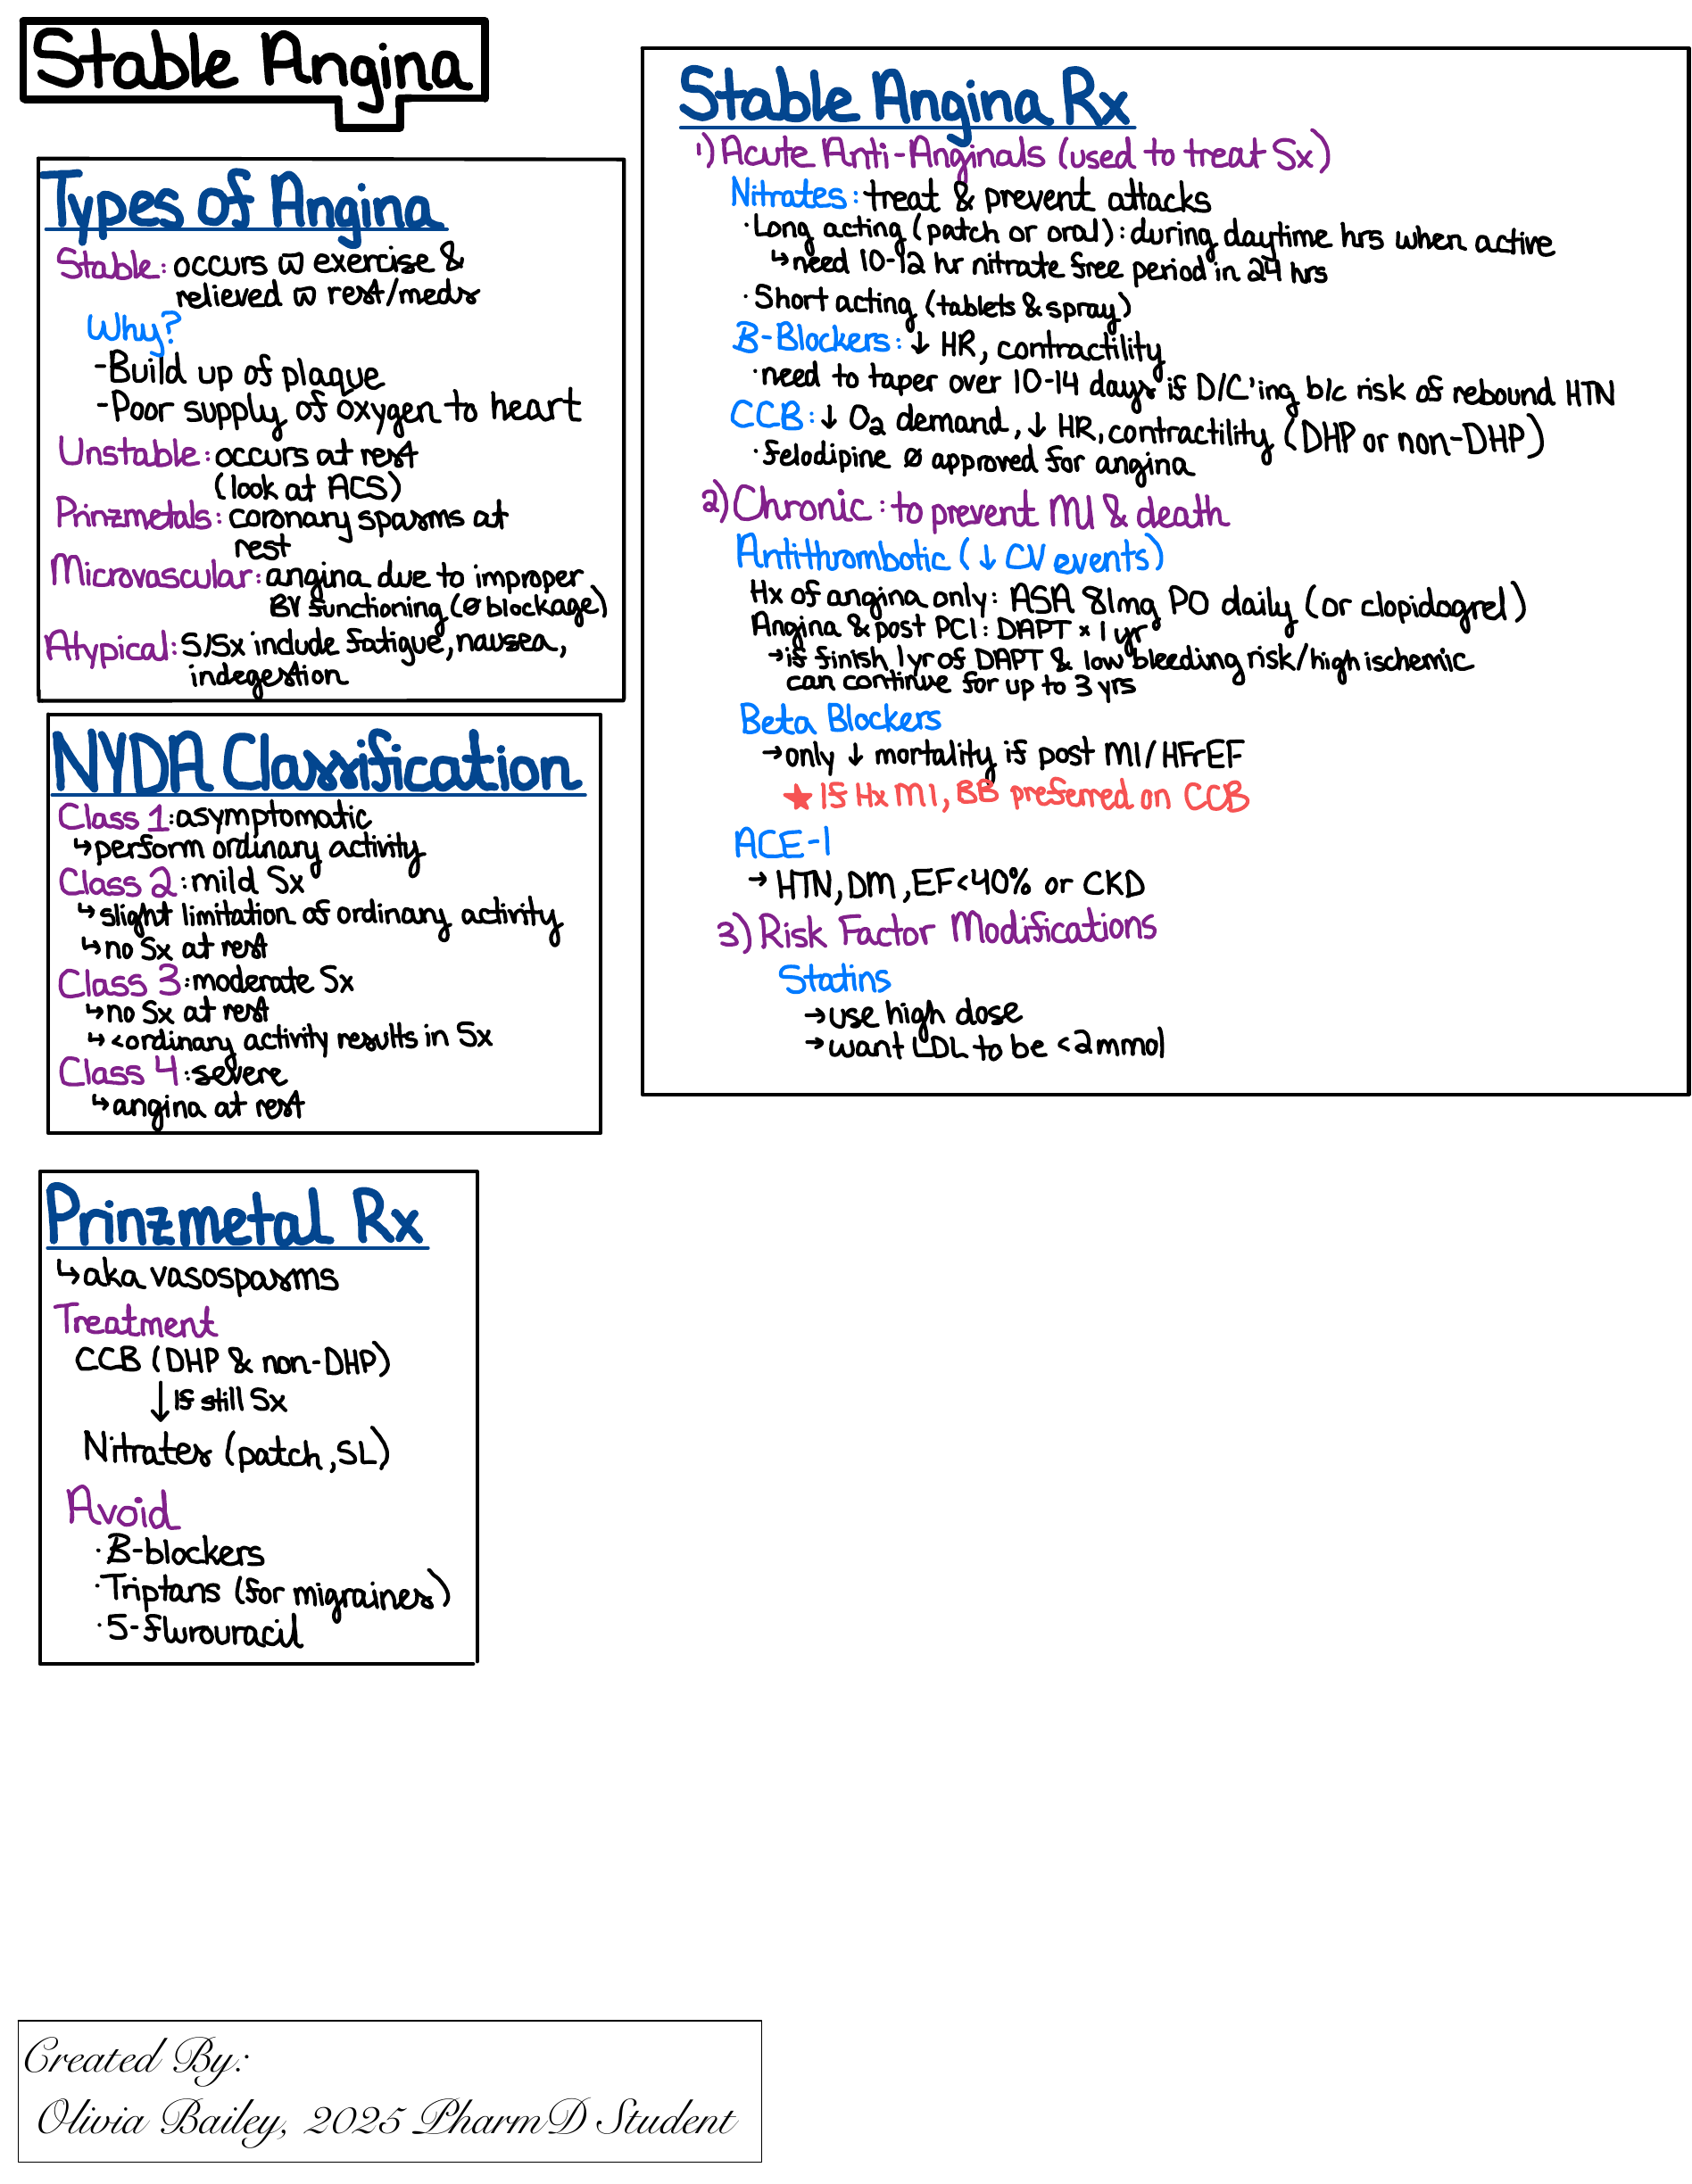 Stable Angina
Types of Angina
Stable: occurs ω exercise &
relieved ω rest/meds
Why?
-Build up of plaque
-Poor supply of oxygen to heart
Unstable: occurs at rest
(look at ACS)
Prinzmetals: coronary spasms at
rest
Microvascular: angina due to improper
BV functioning (Ø blockage)
Atypical: S/Sx include fatigue, nausea,
indegestion
NYDA Classification
Class 1: asymptomatic
↳perform ordinary activity
Class 2: mild Sx
↳slight limitation of ordinary activity
↳no Sx at rest
Class 3: moderate Sx
↳no Sx at rest
↳<ordinary activity results in Sx
Class 4: severe
↳angina at rest
Prinzmetal Rx
↳aka vasospasms
Treatment
CCB (DHP & non-DHP)
↓ If still Sx
Nitrates (patch, SL)
Avoid
·B-blockers
·Triptans (for migraines)
·5-flurouracil
Stable Angina Rx
1) Acute Anti-Anginals (used to treat Sx)
Nitrates: treat & prevent attacks
·Long acting (patch or oral): during daytime hrs when active
↳need 10-12 hr nitrate free period in 24 hrs
·Short acting (tablets & spray)
B-Blockers: ↓ HR, contractility
·need to taper over 10-14 days if D/C'ing b/c risk of rebound HTN
CCB: ↓ O₂ demand, ↓ HR, contractility (DHP or non-DHP)
·felodipine Ø approved for angina
2) Chronic: to prevent MI & death
Antithrombotic (↓ CV events)
Hx of angina only: ASA 81mg PO daily (or clopidogrel)
Angina & post PCI: DAPT x 1 yr
→if finish 1yr of DAPT & low bleeding risk/high ischemic
can continue for up to 3 yrs
Beta Blockers
→only ↓ mortality if post MI/HFrEF
★ If Hx MI, BB preferred on CCB
ACE-I
→ HTN, DM, EF<40% or CKD
3) Risk Factor Modifications
Statins
→use high dose
→want LDL to be <2mmol
Created By:
Olivia Bailey, 2025 PharmD Student